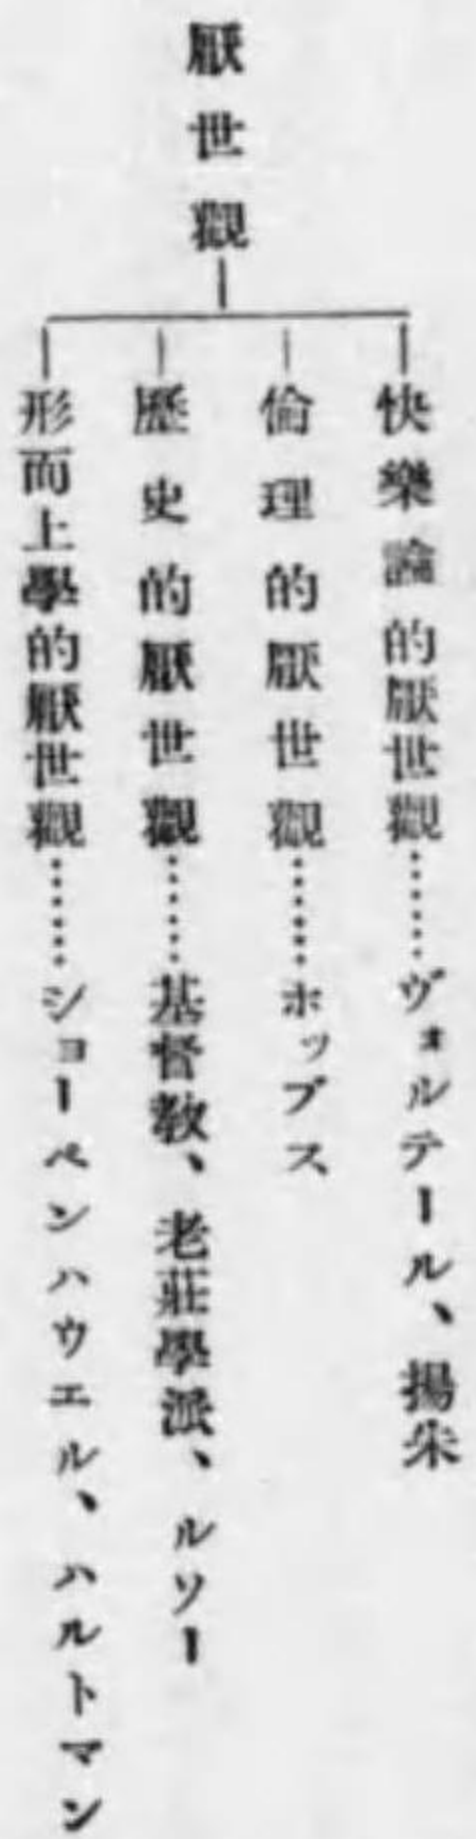 厭世觀
快樂論的厭世觀……ヴォルテール、揚朱
倫理的厭世觀……ホッブス
歷史的厭世觀……基督敎、老莊學派、ルソー
形而上學的厭世觀……ショーペンハウエル、ハルトマン